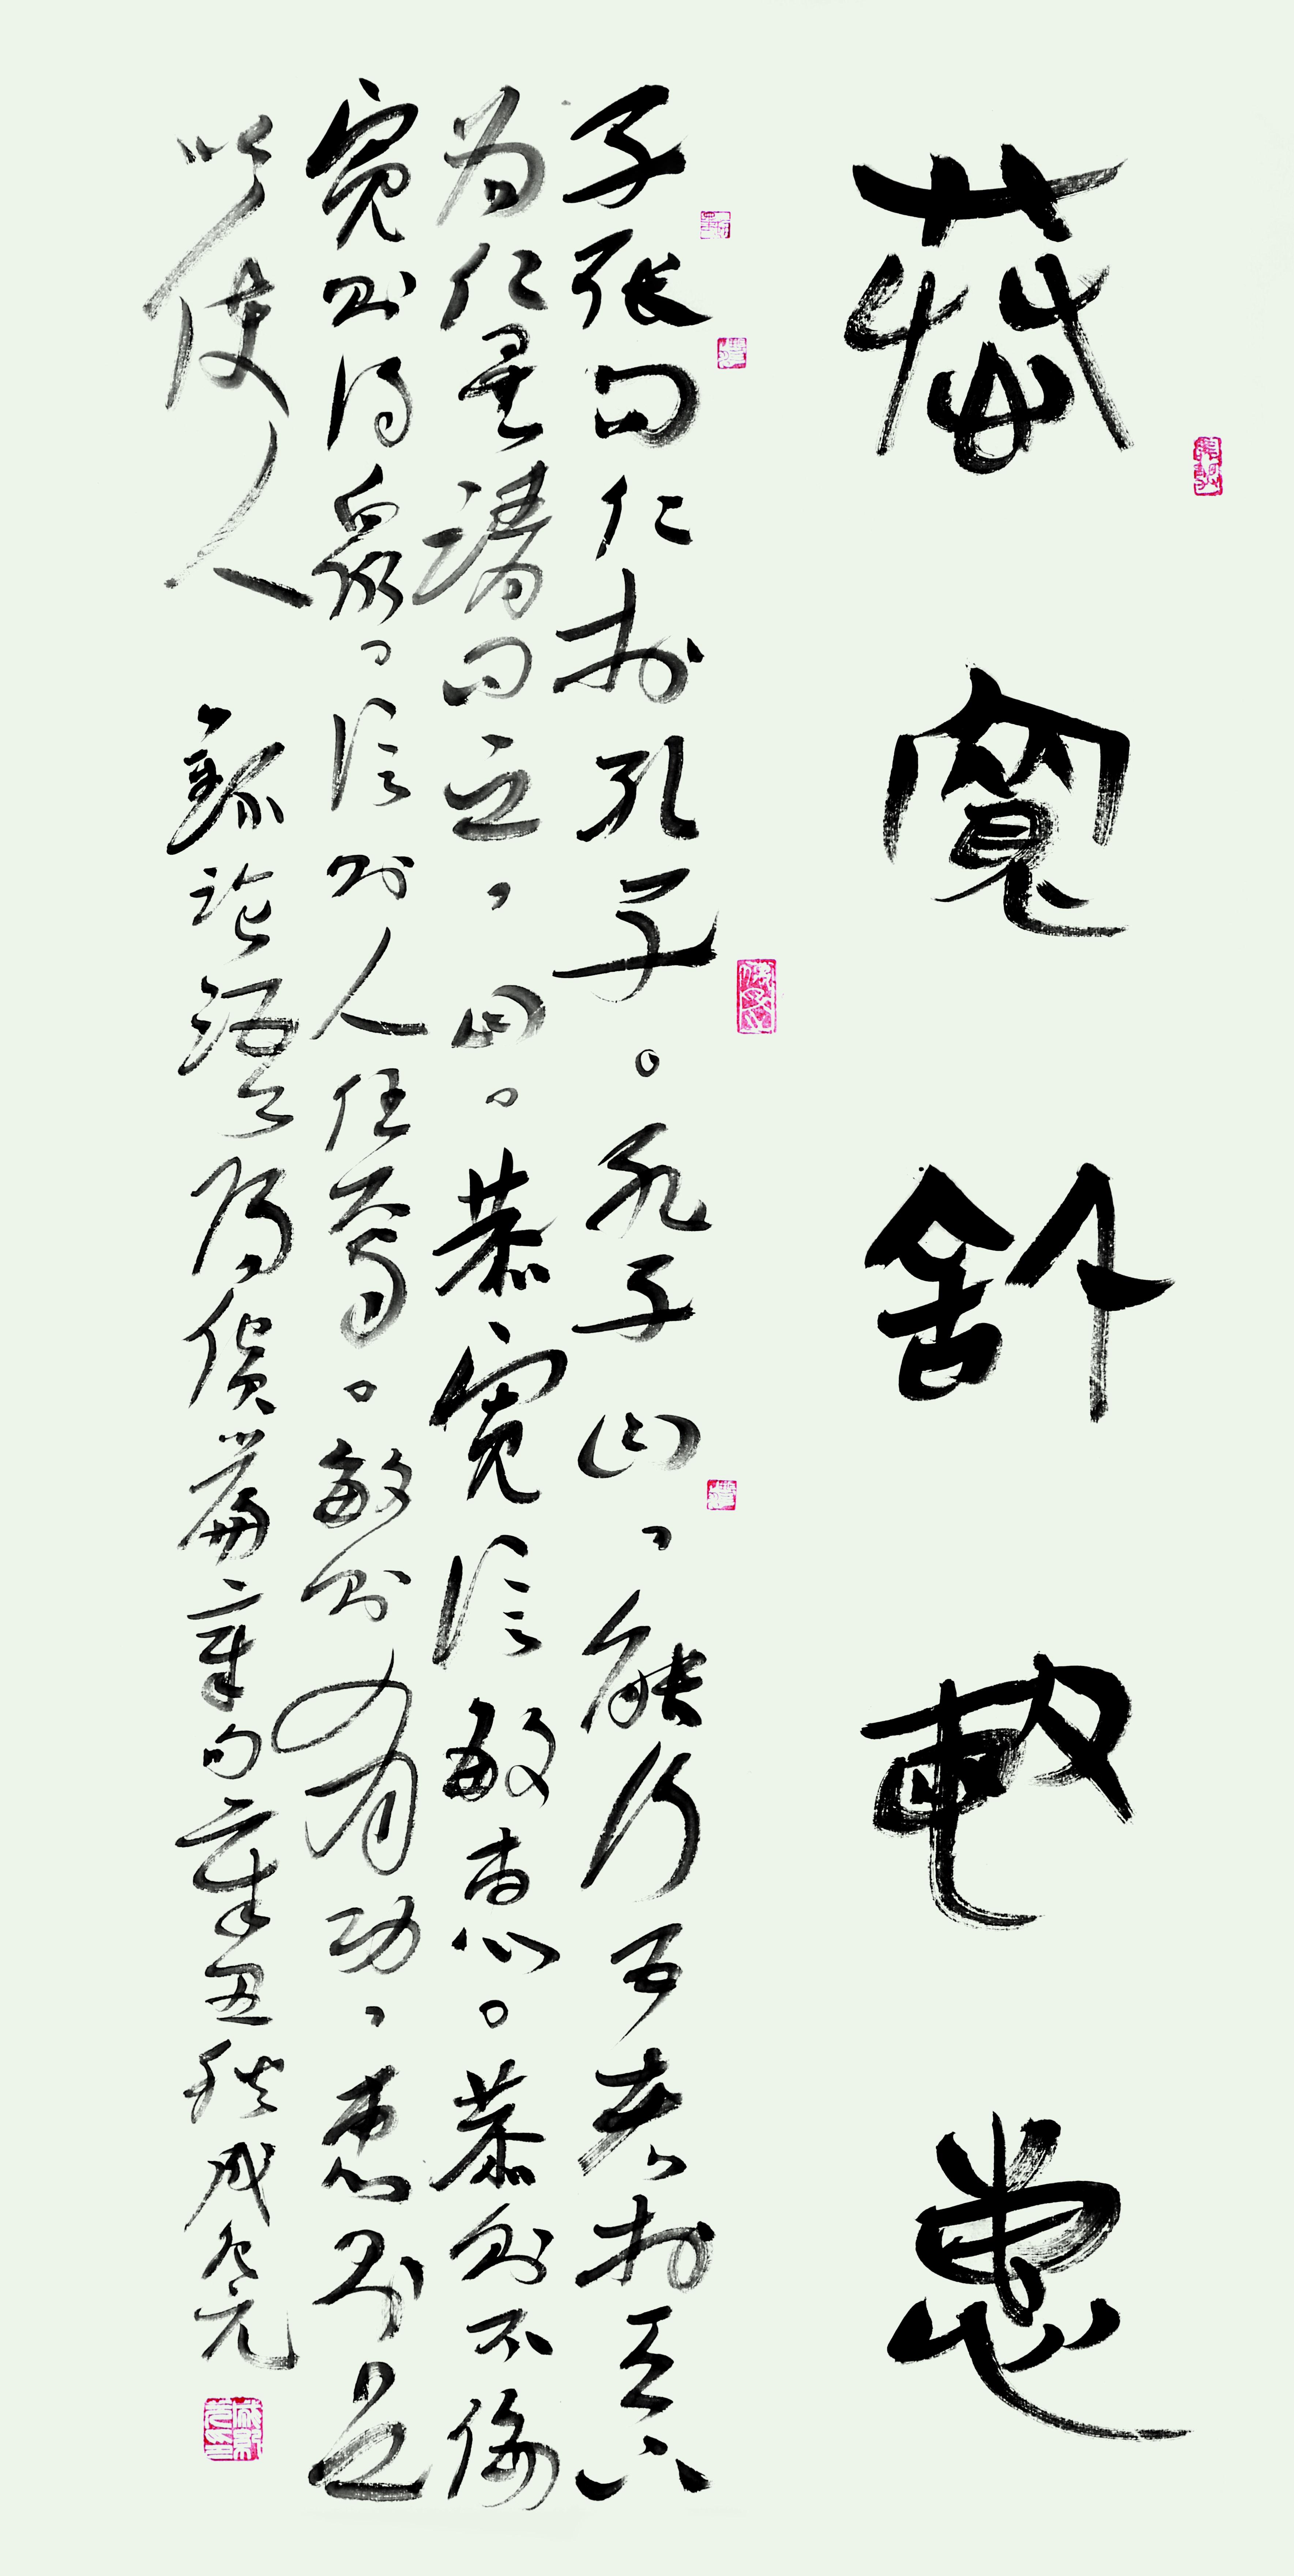 恭寬信敏惠
子張問仁於孔子。孔子曰、能行五者於天下
為仁矣請問之、曰。恭寬信敏惠。恭則不侮
寬則得衆。信則人任焉。敏則有功、惠則足
以使人 錄論語之陽貨篇章句辛丑秋